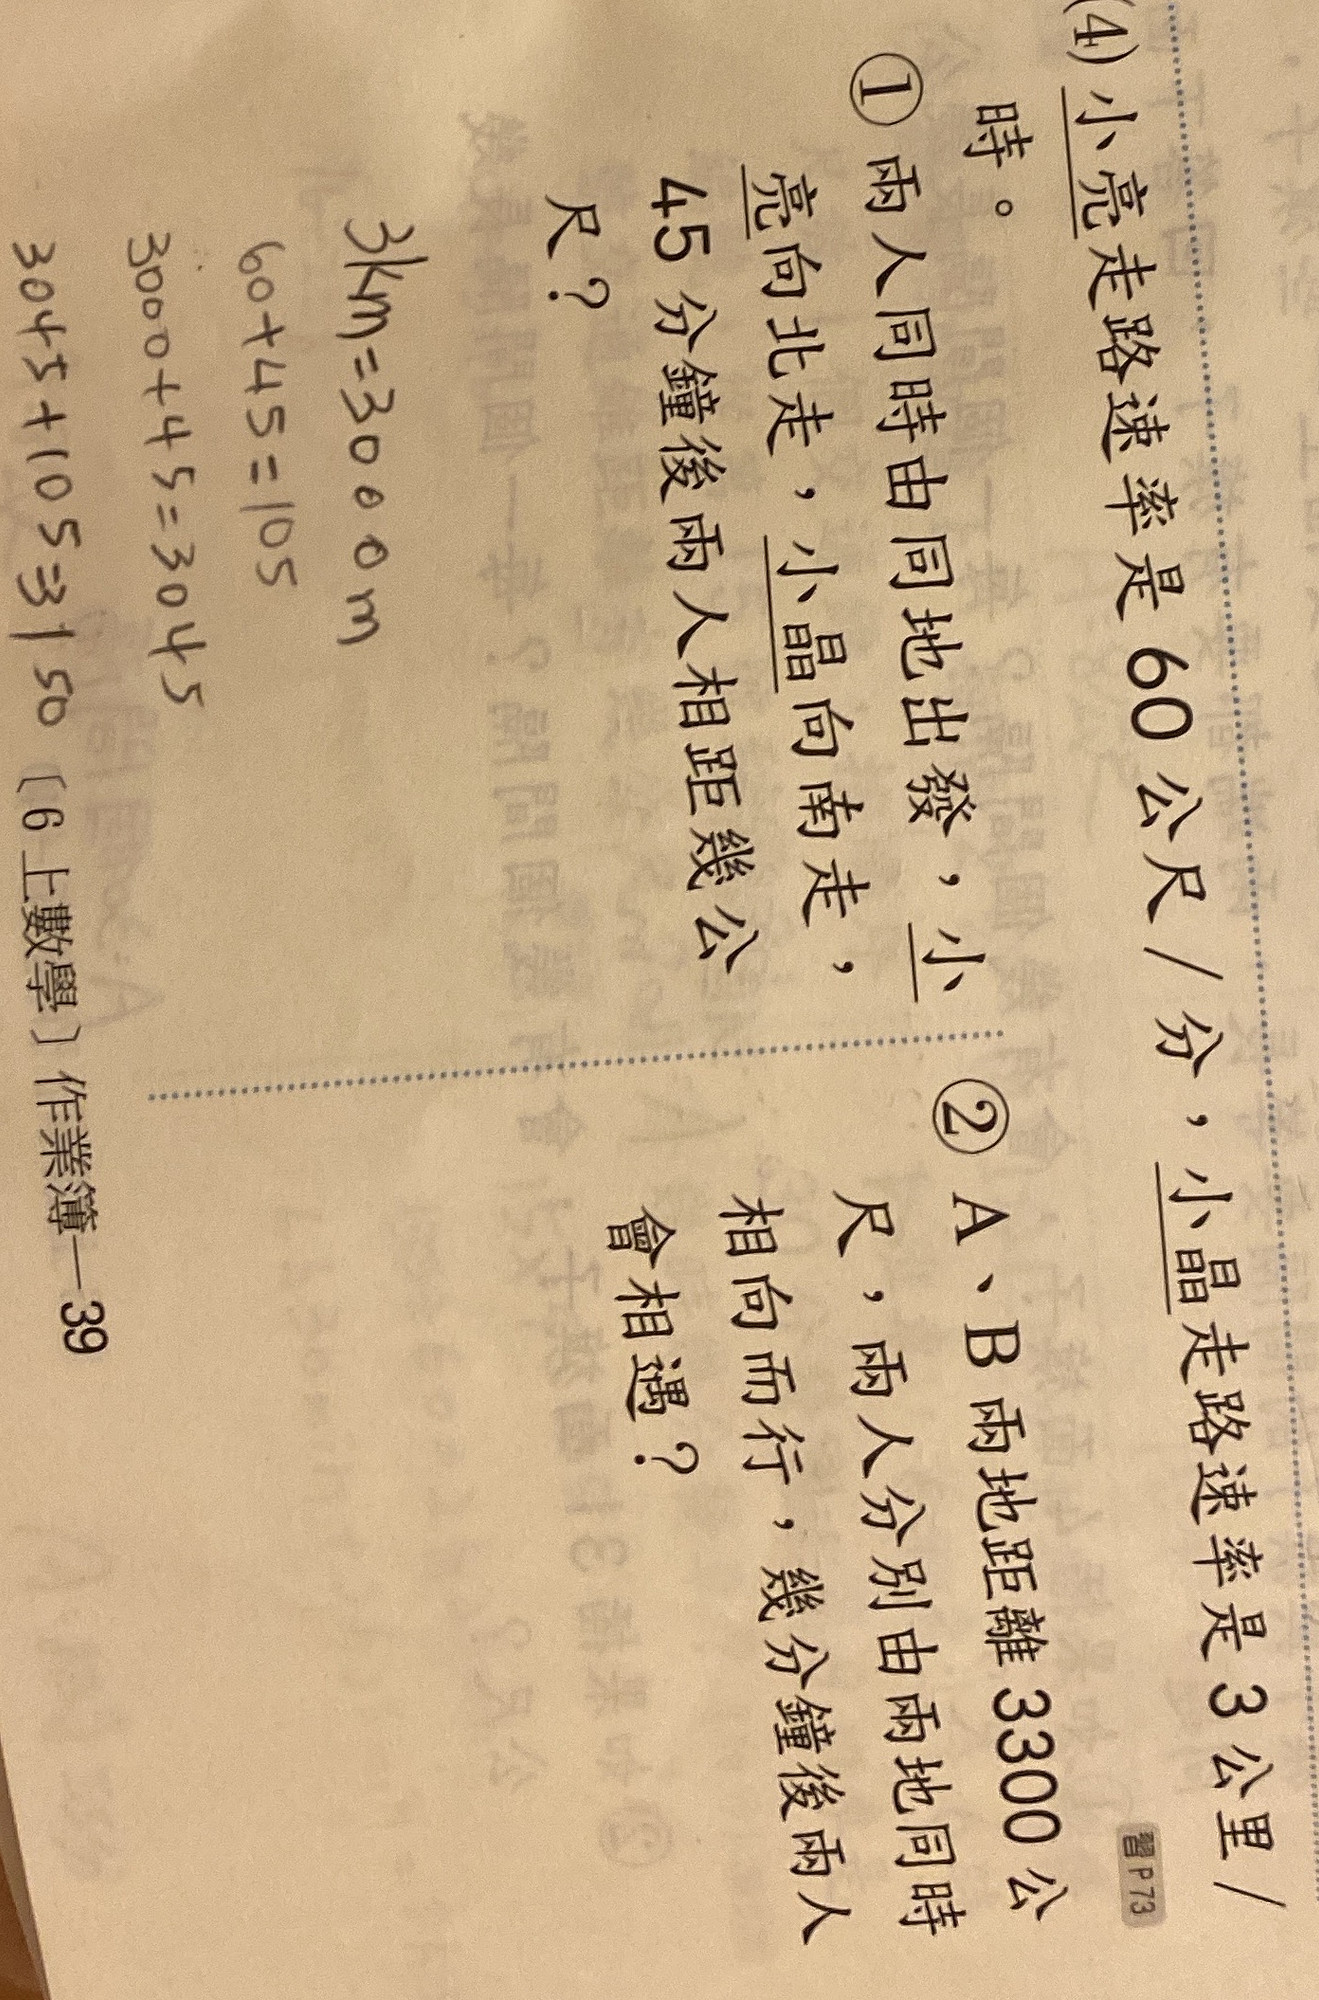 (4) 小亮走路速率是 60 公尺/分，小晶走路速率是 3 公里/
時。
習P73
① 兩人同時由同地出發，小
亮向北走，小晶向南走，
45 分鐘後兩人相距幾公
尺？
3km=3000m
60+45=105
3000+45=3045
3045+105=3150
② A、B 兩地距離 3300 公
尺，兩人分別由兩地同時
相向而行，幾分鐘後兩人
會相遇？
〔6上數學〕作業簿—39